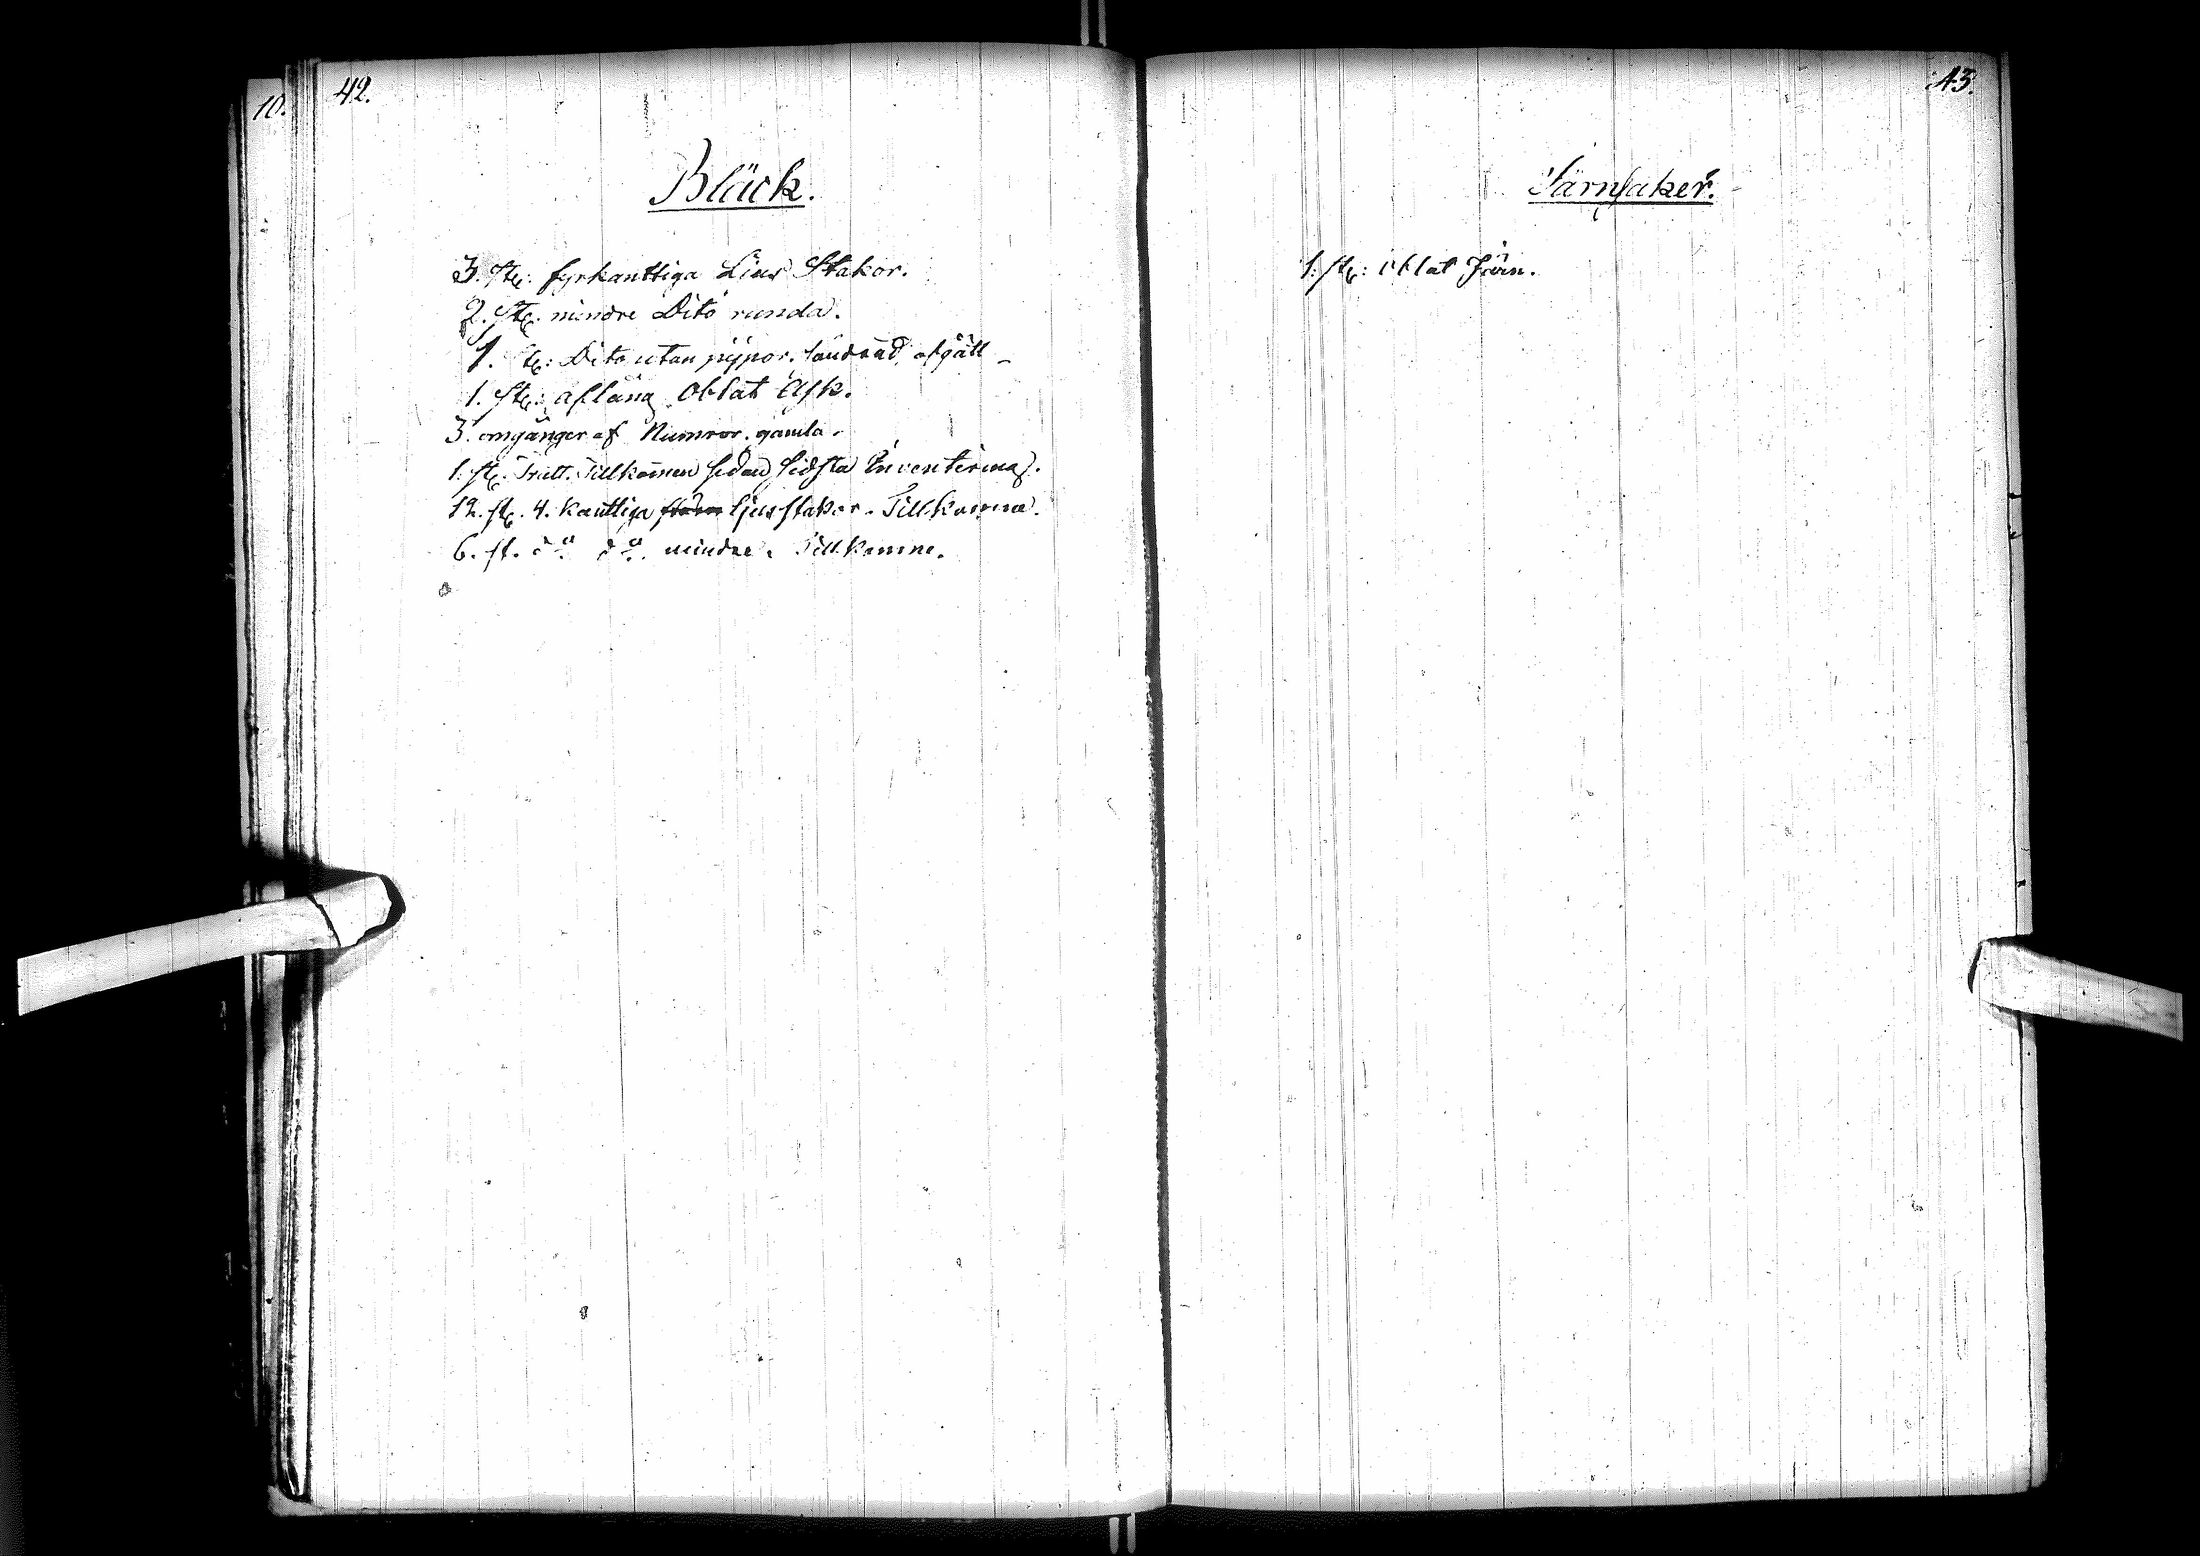 10.
42.
Bläck.
3. St: fyrkanttiga Lius Stakor.
2. St. mindre Dito runda.
1. St: Dito utan pijpor.
1. St: aflång Oblat Ask.
3. omgånger af Numror. gamla.
1. st. Tratt. Tillkommen sedan sidsta Inventering.
12. st. 4. kanttiga ljusstakor. Tillkomne.
6. st. do do mindre. Tillkomne.
43.
Järnsaker.
1. st: oblat Järn.